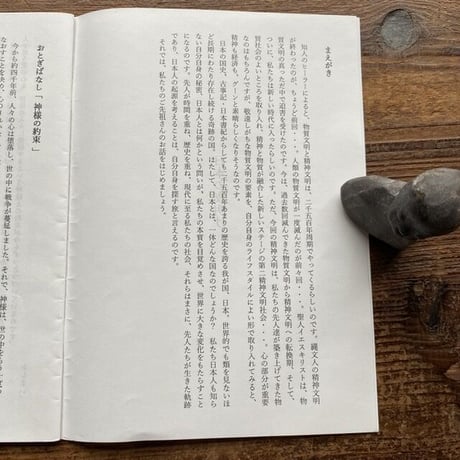 まえがき
知人のヒーラーによると、物質文明と精神文明は、二千五百年周期でやってくるらしいのです。縄文人の精神文明
が終わったのが、ちょうど前回・・・。人類の物質文明が一度滅んだのが前々回・・・。聖人イエスキリストは、物
質文明の真っただ中で迫害を受けたのです。今は、過去数回滅んできた物質文明から精神文明への転換期、そして、
ついに、私たちは新しい時代に入ったらしいのです。ただ、今回の精神文明は、私たちの先人達が築き上げてきた物
質社会のよいところを取り入れ、精神と物質が融合した新しいステージの第二精神文明社会・・・。心の部分が重要
なのはもちろんですが、敬遠しがちな物質文明の要素を、自分自身のライフスタイルによい形で取り入れてみると、
精神も経済も、グーンと素晴らしくなりそうなのです。
日本の国史、古事記・日本書紀からしても二千五百年あまりの歴史を誇る我が国、日本。世界的でも類を見ないほ
ど長期にわたり存在し続ける奇跡の国。はたして、日本とは、一体どんな国なのでしょうか？　私たち日本人も知ら
ない自分自身の秘密、日本人とは何かという問いが、私たちの本質を目覚めさせ、世界に大きな変化をもたらすこと
になるのです。先人が時間を重ね、歴史を重ね、現代に至る私たちの社会、それらはまさに、先人たちが生きた軌跡
であり、日本人の起源を考えることは、自分自身を探す旅と言えるのです。
それでは、私たちのご先祖さんのお話をはじめましょう。
おとぎばなし「神様の約束」
今から約四千年前、人々の心は堕落し、世の中に戦争が蔓延しました。それで、神様は、世の中を
なおすことを決め